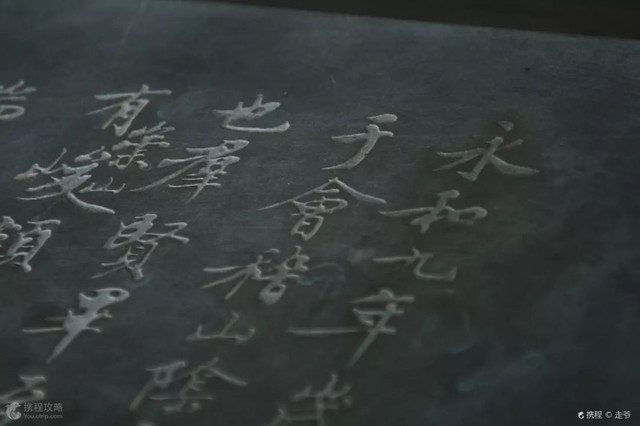 永和九年
于會稽山陰
也羣賢畢
有崇山峻領
携程攻略
You.ctrip.com
携程 © 走爷